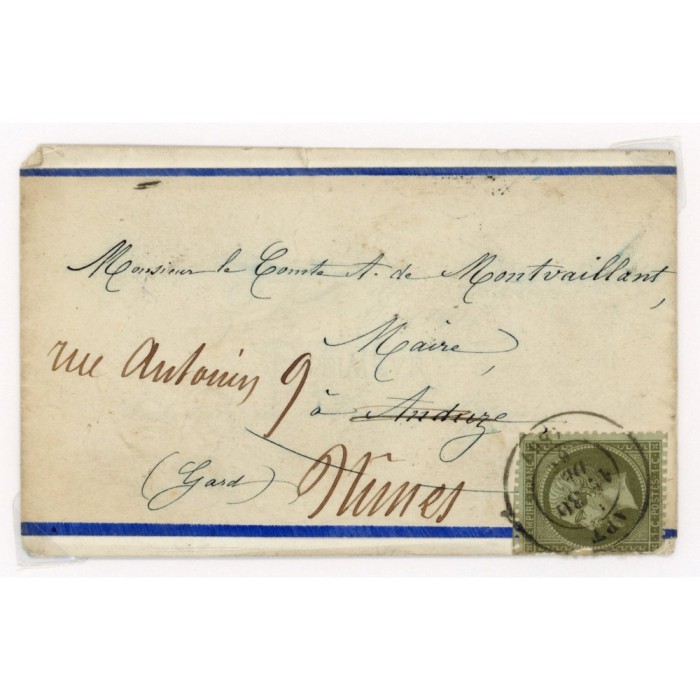 Monsieur le Comte A. de Montvaillant,
Maire,
rue Antonin 9
à Anduze
(Gard) Nîmes
APT